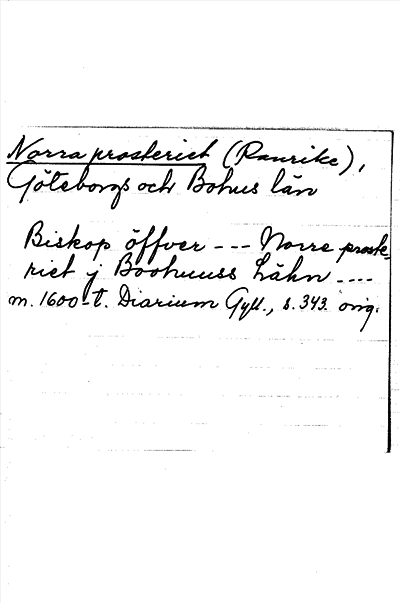 Norra prosteriet (Ranrike),
Göteborgs och Bohus län
Biskop öffver --- Norre proste-
riet j Boohuuss Lähn ----
m. 1600-t. Diarium Gyll., s. 343. orig.